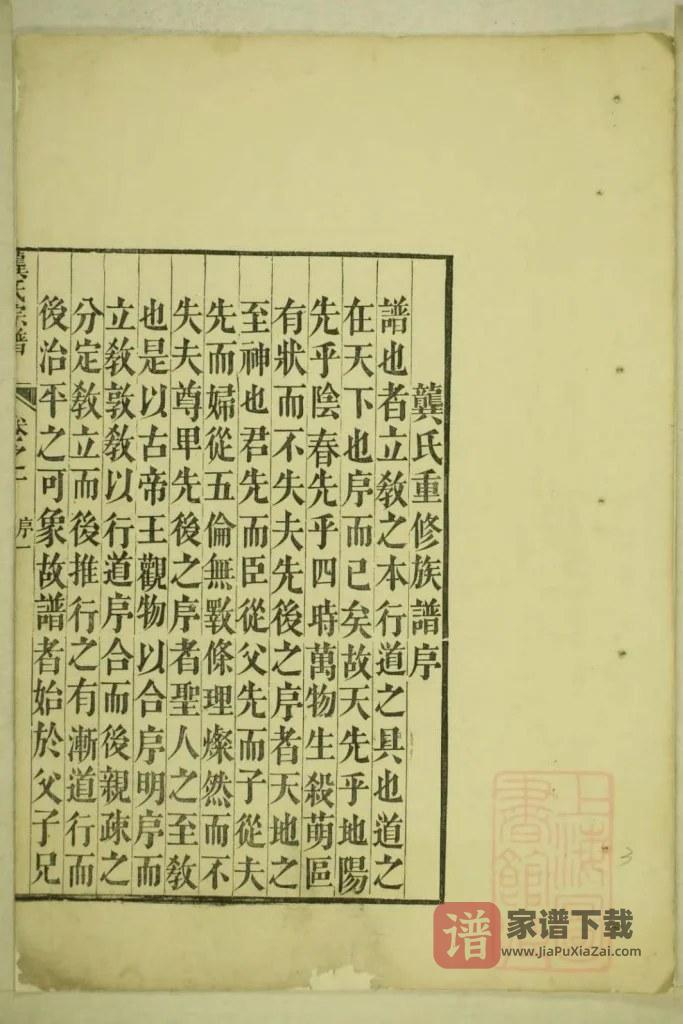 龔氏重修族譜序
譜也者立敎之本行道之具也道之
在天下也序而已矣故天先乎地陽
先乎陰春先乎四時萬物生殺萌區
有狀而不失夫先後之序者天地之
至神也君先而臣從父先而子從夫
先而婦從五倫無斁條理燦然而不
失夫尊卑先後之序者聖人之至敎
也是以古帝王觀物以合序明序而
立敎敦敎以行道序合而後親疎之
分定敎立而後推行之有漸道行而
後治平之可象故譜者始於父子兄
龔氏宗譜
卷之一
序一
上海
書館
3
谱
家谱下载
www.JiaPuXiaZai.com